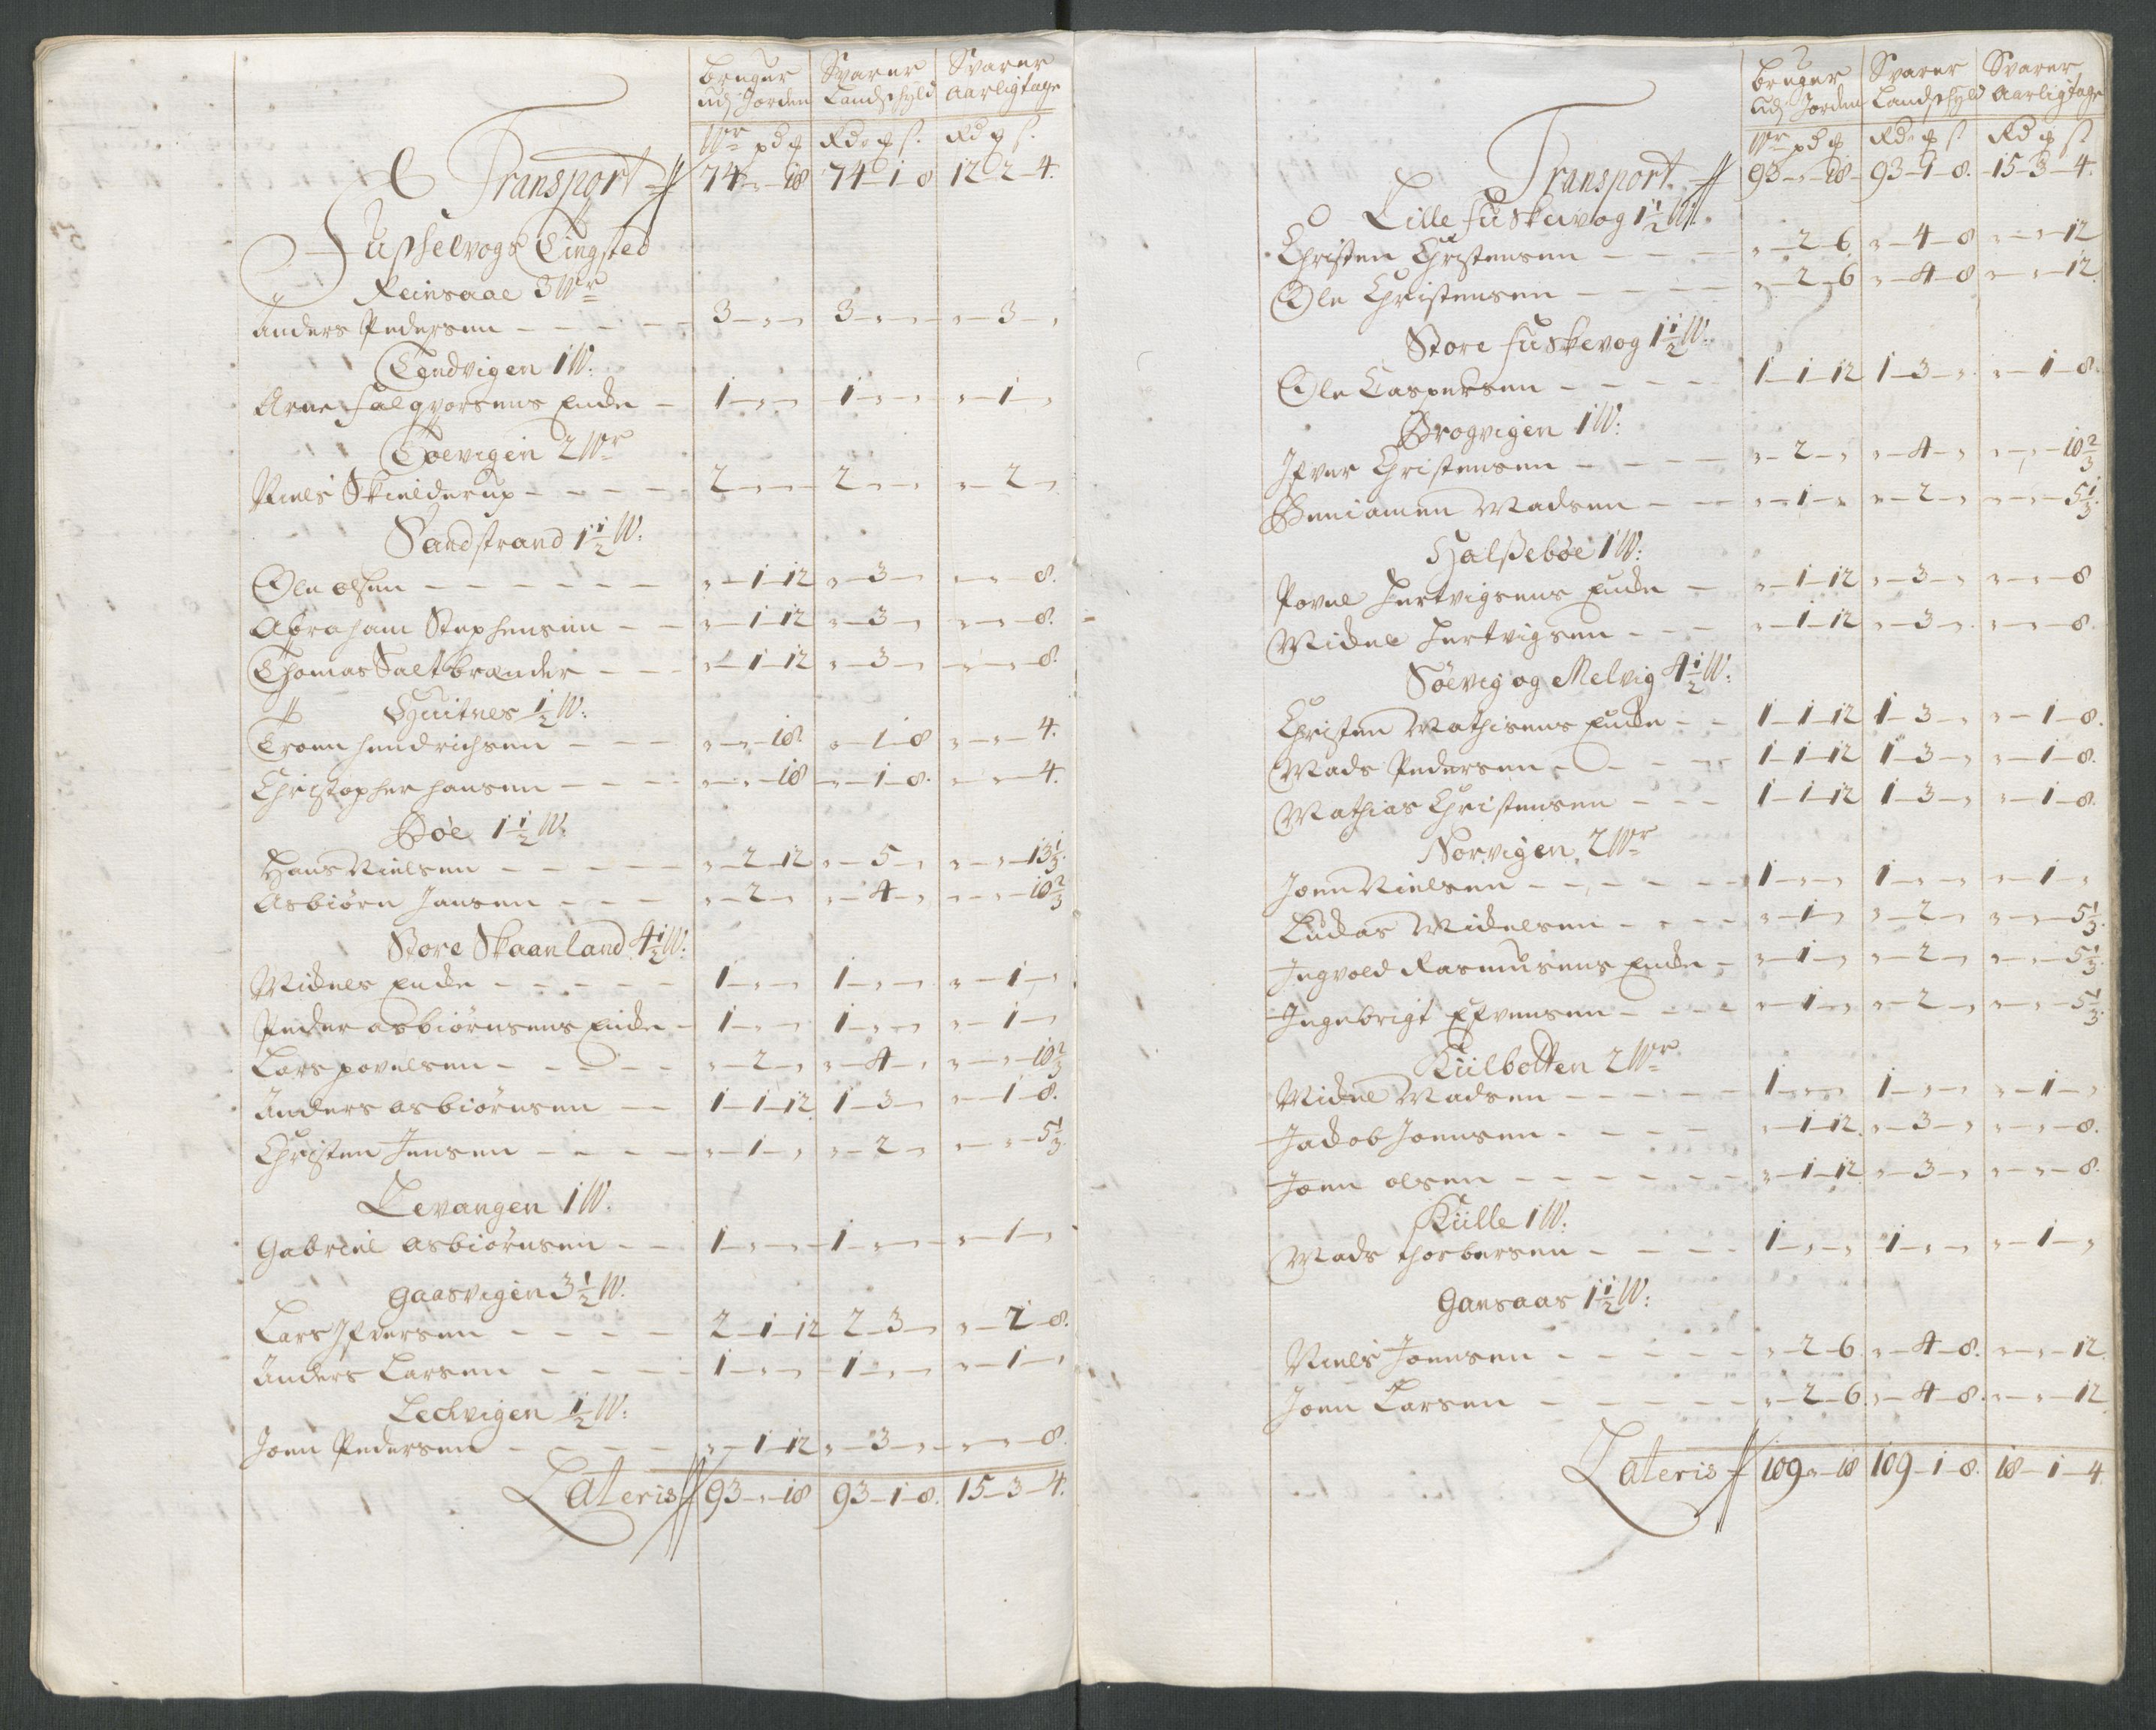 bruger Svarer Svarer
udj Jorden Landschyld Aarligtage
Wr pd ȹ Rdr ȹ s. Rd ȹ s.
Transport 74-„-18 74-1-8 12-2-4.
Fuschelvogs Tingsted
Reinsaae 3 Wr
Anders Pedersen - - - - 3-„-„ 3-„-„ „-3-„
Tendvigen 1 W:
Arne falqvorsens Encke - 1-„-„ 1-„-„ „-1-„
Toevigen 2 Wr
Niels Skielderup - - - - 2-„-„ 2-„-„ „-2-„
Sandstrand 1½ W:
Ole olsen - - - - - - „-1-12 „-3-„ „-„-8.
Abraham Stephensen - - „-1-12 „-3-„ „-„-8.
Thomas Saltbrænder - - „-1-12 „-3-„ „-„-8.
Huitnes ½ W:
Troen hendrichsen - - - „-„-18 „-1-8 „-„-4.
Christopher hansen - - - „-„-18 „-1-8. „-„-4.
Bøe 1½ W:
Hans Nielsen - - - - - „-2-12 „-5-„ „-„-13⅓.
Asbiørn Jansen - - - „-2-„ „-4-„ „-„-10⅔
Store Skaanland 4½ W:
Michels Encke - - - - - 1-„-„ 1-„-„ „-1-„
Peder asbiørnsens Encke - 1-„-„ 1-„-„ „-1-„
Lars povelsen - - - - - „-2-„ „-4-„ „-„-10⅔
Anders asbiørnsen - - 1-1-12 1-3-„ „-1-8.
Christen Jensen - - - - „-1-„ „-2-„ „-„-5⅓
Levangen 1 W.
Gabriel asbiørnsen - - 1-„-„ 1-„-„ „-1-„
Gaasvigen 3½ W.
Lars Ifversen - - - - 2-1-12 2-3-„ „-2-8.
Anders Larsen - - - - 1-„-„ 1-„-„ „-1-„
Leckvigen ½ W:
Joen Pedersen - - - - „-1-12 „-3-„ „-„-8.
Lateris 93-„-18 93-1-8. 15-3-4.
bruger Svarer Svarer
udj Jorden Landschyld Aarligtage
Wr pd ȹ Rdr ȹ s Rd ȹ s
Transport. 93-„-18 93-1-8. 15-3-4.
Lille fuskevog 1½ W.
Christen Christensen - - - - „-2-6 „-4-8 „-„-12
Ole Christensen - - - - „-2-6 „-4-8 „-„-12.
Store fuskevog 1½ W:
Ole Caspersen - - - - 1-1-12 1-3-„ „-1-8.
Brogvigen 1 W:
Ifver Christensen - - - - „-2-„ „-4-„ „-„-10⅔
Beniamen Madsen - - - „-1-„ „-2-„ „-„-5⅓.
Halssebøe 1 W:
Povel hertvigsens Encke - „-1-12 „-3-„ „-„-8
Michel hertvigsen - - - „-1-12 „-3-„ „-„-8.
Søevig og Melvig 4½ W:
Christen Mathisens Encke - - 1-1-12 1-3-„ „-1-8.
Mads Pedersen - - - - 1-1-12 1-3-„ „-1-8.
Mathias Christensen - - - 1-1-12 1-3-„ „-1-8.
Norvigen 2 Wr
Joen Nielsen - - - - - 1-„-„ 1-„-„ „-1-„
Ludas Michelsen - - - - „-1-„ „-2-„ „-„-5⅓.
Ingvold Rasmusens Encke - „-1-„ „-2-„ „-„-5⅓.
Ingebrigt Efvensen - - - „-1-„ „-2-„ „-„-5⅓.
Kiilbotten 2 Wr
Michel Madsen - - - - - 1-„-„ 1-„-„ „-1-„
Jacob Joensen - - - - „-1-12. „-3-„ „-„-8.
Joen olsen - - - - - - „-1-12. „-3-„ „-„-8.
Kiille 1 W:
Mads thorbersen - - - - 1-„-„ 1-„-„ „-1-„
Gansaas 1½ W:
Niels Joensen - - - - - „-2-6. „-4-8. „-„-12.
Joen Larsen - - - - - „-2-6. „-4-8. „-„-12
Lateris 109-„-18 109-1-8. 18-1-4.